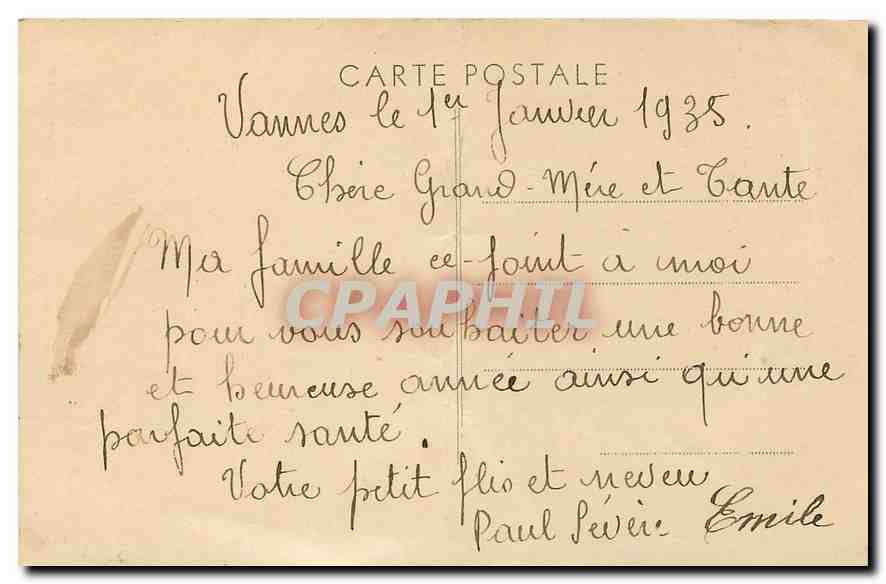 CARTE POSTALE
Vannes le 1er Janvier 1935.
Chère Grand-Mère et Tante
Ma famille ce-joint à moi
CPAPHIL
pour vous souhaiter une bonne
et heureuse année ainsi qu'une
parfaite santé.
Votre petit flis et neveu
Paul Sévère Emile